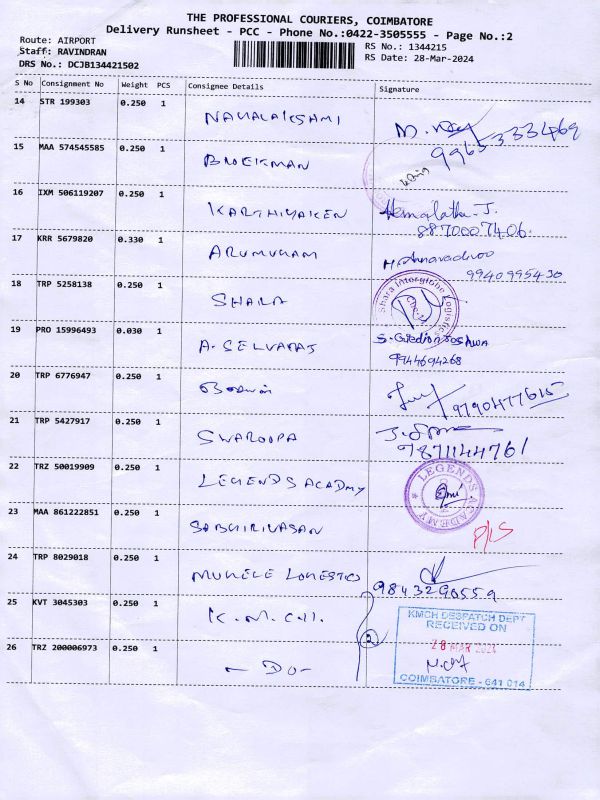 THE PROFESSIONAL COURIERS, COIMBATORE
Delivery Runsheet - PCC - Phone No.:0422-3505555 - Page No.:2
Route: AIRPORT
Staff: RAVINDRAN
DRS No.: DCJB134421502
RS No.: 1344215
RS Date: 28-Mar-2024
S No Consignment No Weight PCS Consignee Details Signature
14 STR 199303 0.250 1
15 MAA 574545585 0.250 1
16 IXM 506119207 0.250 1 KARTHIYAKEN Hemalatha. J.
8870007406.
17 KRR 5679820 0.330 1 ARUMUGAM
9940995430
18 TRP 5258138 0.250 1 SHARA Shara Interglobe Logistics
19 PRO 15996493 0.030 1 A. SELVARAJ
9944694268
20 TRP 6776947 0.250 1 9790477615
21 TRP 5427917 0.250 1 SWAROOPA
9871144761
22 TRZ 50019909 0.250 1 LEGENDS ACADMY * LEGENDS ACADEMY
23 MAA 861222851 0.250 1
24 TRP 8029018 0.250 1
9843290559
25 KVT 3045303 0.250 1 K.M.C.H. KMCH DESPATCH DEPT
RECEIVED ON
28 MAR 2024
26 TRZ 200006973 0.250 1 - DO -
COIMBATORE - 641 014